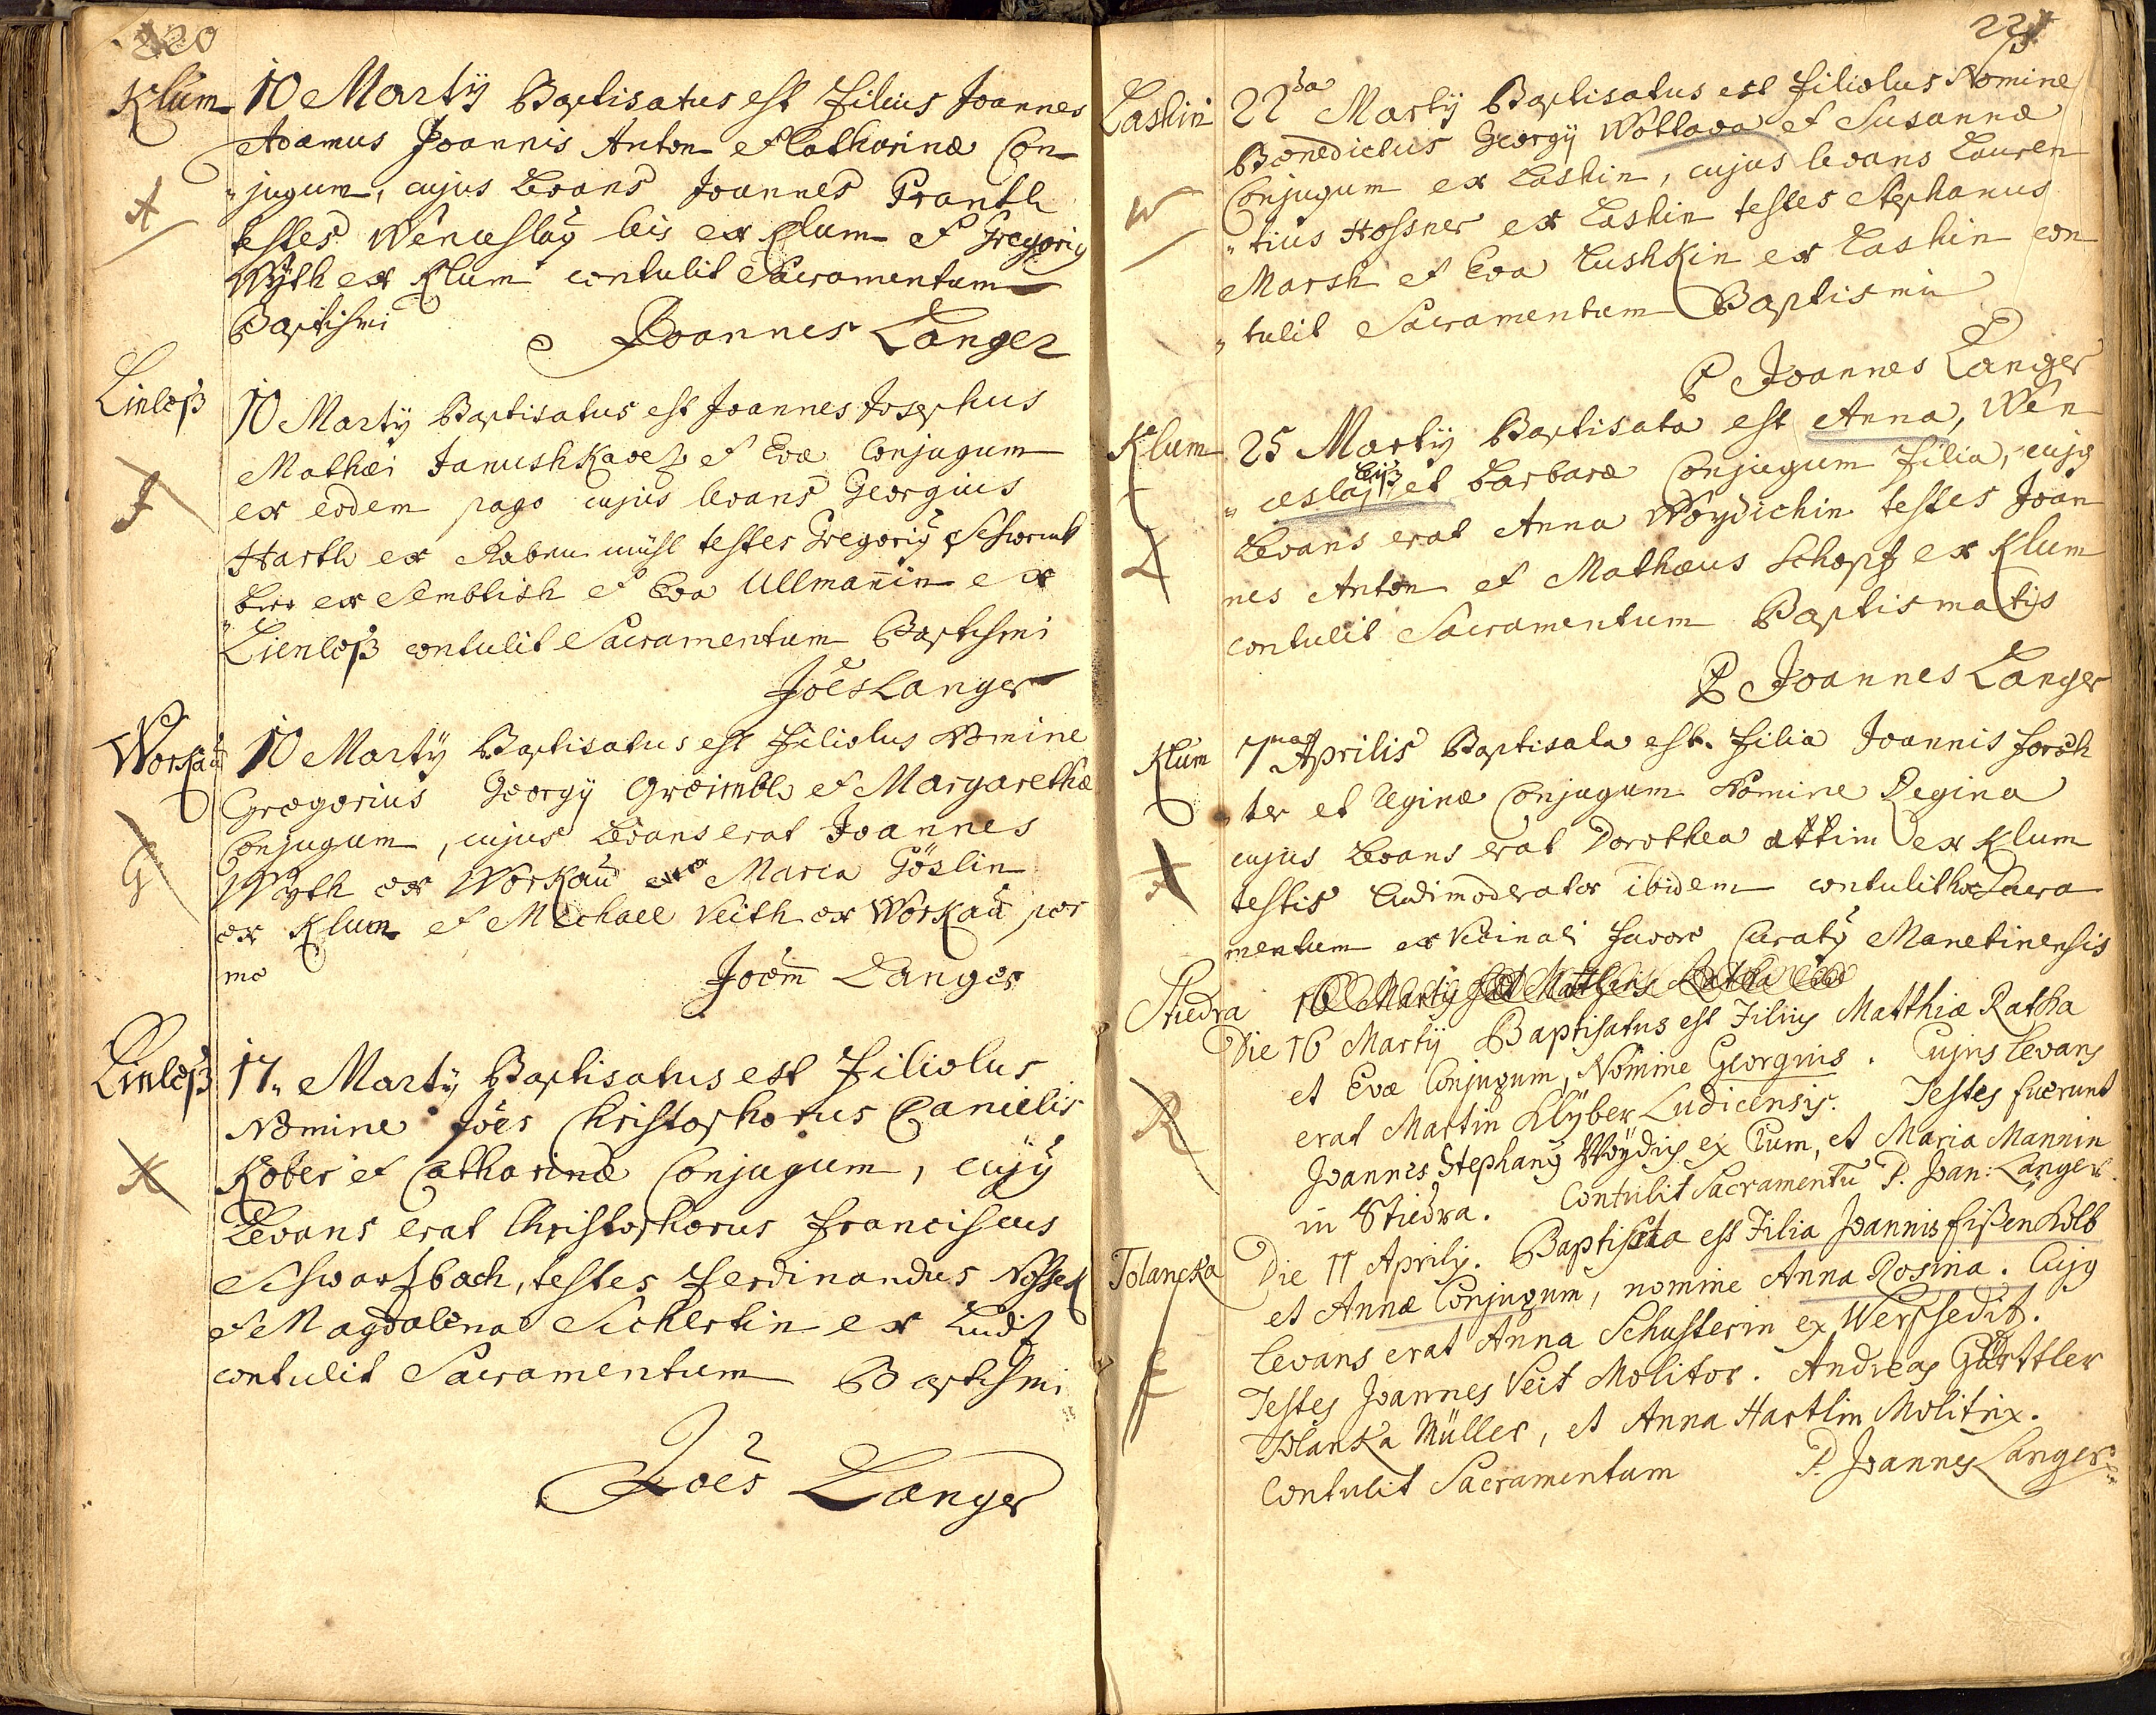 220
Klum 10 Martÿ Baptisatus est Filius Joannes
Adamus Joannis Anton et Catharinæ Con
A
"jugum, cujus Levans Joannes Grantl
testes Wenceslaÿ leis ex Klum et Gregoriÿ
Wÿth ex Klum contulit Sacramentum
Baptismi
Joannes Langer
Linleß
10 Martÿ Baptisatus est Joannes Josephus
Mathæi Janushkavez et Evæ Conjugum
J
ex eodem pago cujus levans Georgius
Hartl ex Raben mühl testes Gregoriÿ
ex Semblish et Eva Ullmañin ex
Lienleß contulit Sacramentum Baptismi
Joes Langer
Workaú 10 Martÿ Baptisatus est Filiolus Nomine
Gregorius Georgÿ Greimbl et Margarethæ
G
Conjugum, cujus Levans erat Joannes
Wÿth ex Workaú Maria Göslin
ex Klum et Michael Veith ex Workaú per
me
Joem Langer
Linleß 17. Martÿ Baptisatus est Filiolus
Nomine Joes Christophorus Danielis
K
Kober et Catharinæ Conjugum, cujÿ
Levans erat Christophorus Franciscus
Schwartzbach, testes Ferdinandus Nossek
et Magdalena Sichertin ex Luditz
contulit Sacramentum Baptismi
Joes Langer
221
Lashin 22da Martÿ Baptisatus est Filiolus Nomine
Benedictus Georgÿ Wottawa et Susannæ
W
Conjugum ex Lashin, cujus levans Lauren
"tius Hossner ex Lashin testes Stephanus
Marsh et Eva Lushkin ex Lashin con
"tulit Sacramentum Baptismi
P Joannes Langer
Klum 25 Martÿ Baptisata est Anna, Wen
"ceslaÿ leiß et Barbaræ Conjugum Filia, cujÿ
L
Levans erat Anna Woydichin testes Joan
nes Anton et Mathæus Schopf ex Klum
contulit Sacramentum Baptismatis
P Joannes Langer
Klum 7ma Aprilis Baptisata est Filia Joannis foreh
ter et Reginæ Conjugum Nomine Regina
cujus Levans erat Dorothea ex Klum
testis Ludimoderator ibidem contulit hoc Sacra
mentum ex Vicinali favore Curatÿ Manetinensis
Stiedra
Die 16 Martÿ Baptisatus est Filius Matthiæ Ratha
et Evæ Conjugum, Nomine Georgius. Cujus levans
R
erat Martin Klÿber Ludicensis. Testes fuerunt
Joannes Stephanÿ Woÿdis ex Clum, et Maria Mannin
in Stiedra. Contulit Sacramentũ P. Joan: Langer.
Tolancka Die 11 Aprilis. Baptisata est Filia Joannis Eißenkolb
et Annæ Conjugum, nomine Anna Rosina. Cujÿ
levans erat Anna Schusterin ex Werschedit.
Testes Joannes Veit Molitor. Andreas Gürttler
Tolanka Müller, et Anna Hartlin Molitrix.
Contulit Sacramentum P. Joannes Langer